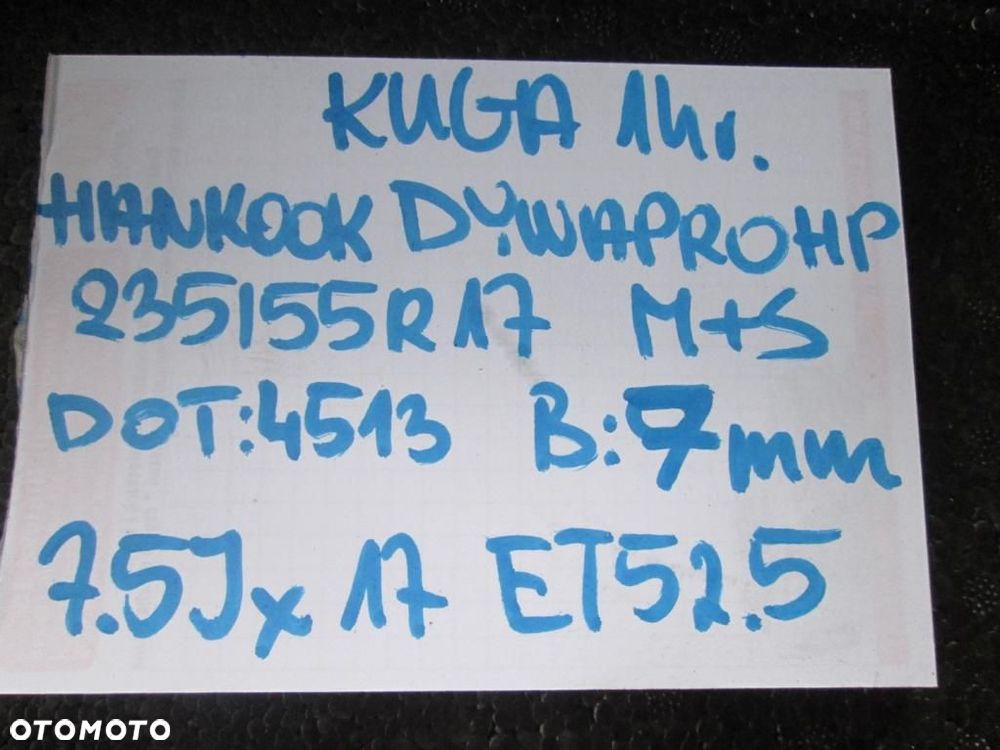 KUGA 14r.
HANKOOK DYWAPRO HP
235/55R17 M+S
DOT:4513 B:7mm
7.5Jx17 ET52.5
OTOMOTO